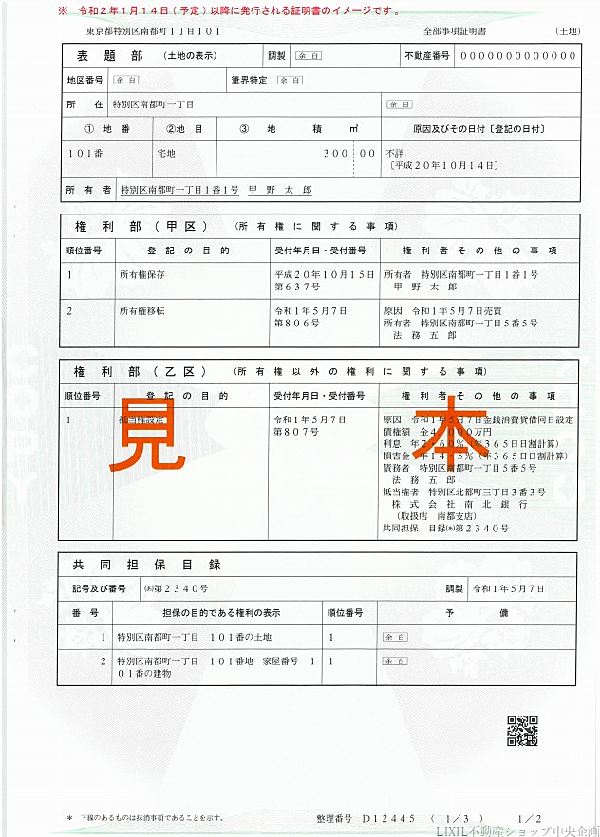 ※ 令和２年１月１４日（予定）以降に発行される証明書のイメージです。
東京都特別区南都町１丁目１０１ 全部事項証明書 （土地）
表題部 （土地の表示） 調製 余白 不動産番号 ０００００００００００００
地区番号 余白 筆界特定 余白
所在 特別区南都町一丁目 余白
① 地番 ②地目 ③ 地積 ㎡ 原因及びその日付〔登記の日付〕
１０１番 宅地 ３００ ００ 不詳
〔平成２０年１０月１４日〕
所有者 特別区南都町一丁目１番１号 甲野太郎
権利部（甲区） （所有権に関する事項）
順位番号 登記の目的 受付年月日・受付番号 権利者その他の事項
１ 所有権保存 平成２０年１０月１５日 所有者 特別区南都町一丁目１番１号
第６３７号 甲野太郎
２ 所有権移転 令和１年５月７日 原因 令和１年５月７日売買
第８０６号 所有者 特別区南都町一丁目５番５号
法務五郎
権利部（乙区） （所有権以外の権利に関する事項）
順位番号 登記の目的 受付年月日・受付番号 権利者その他の事項
１ 抵当権設定 令和１年５月７日 原因 令和１年５月７日金銭消費貸借同日設定
第８０７号 債権額 金４，０００万円
見本
利息 年２・６０％（年３６５日日割計算）
損害金 年１４・５％（年３６５日日割計算）
債務者 特別区南都町一丁目５番５号
法務五郎
抵当権者 特別区北都町三丁目３番３号
株式会社南北銀行
（取扱店 南都支店）
共同担保 目録㋐第２３４０号
共同担保目録
記号及び番号 ㋐第２３４０号 調製 令和１年５月７日
番号 担保の目的である権利の表示 順位番号 予備
１ 特別区南都町一丁目 １０１番の土地 １ 余白
２ 特別区南都町一丁目 １０１番地 家屋番号 １ １ 余白
０１番の建物
＊ 下線のあるものは抹消事項であることを示す。 整理番号 Ｄ１２４４５ （１／３） １／２
LIXIL不動産ショップ中央企画